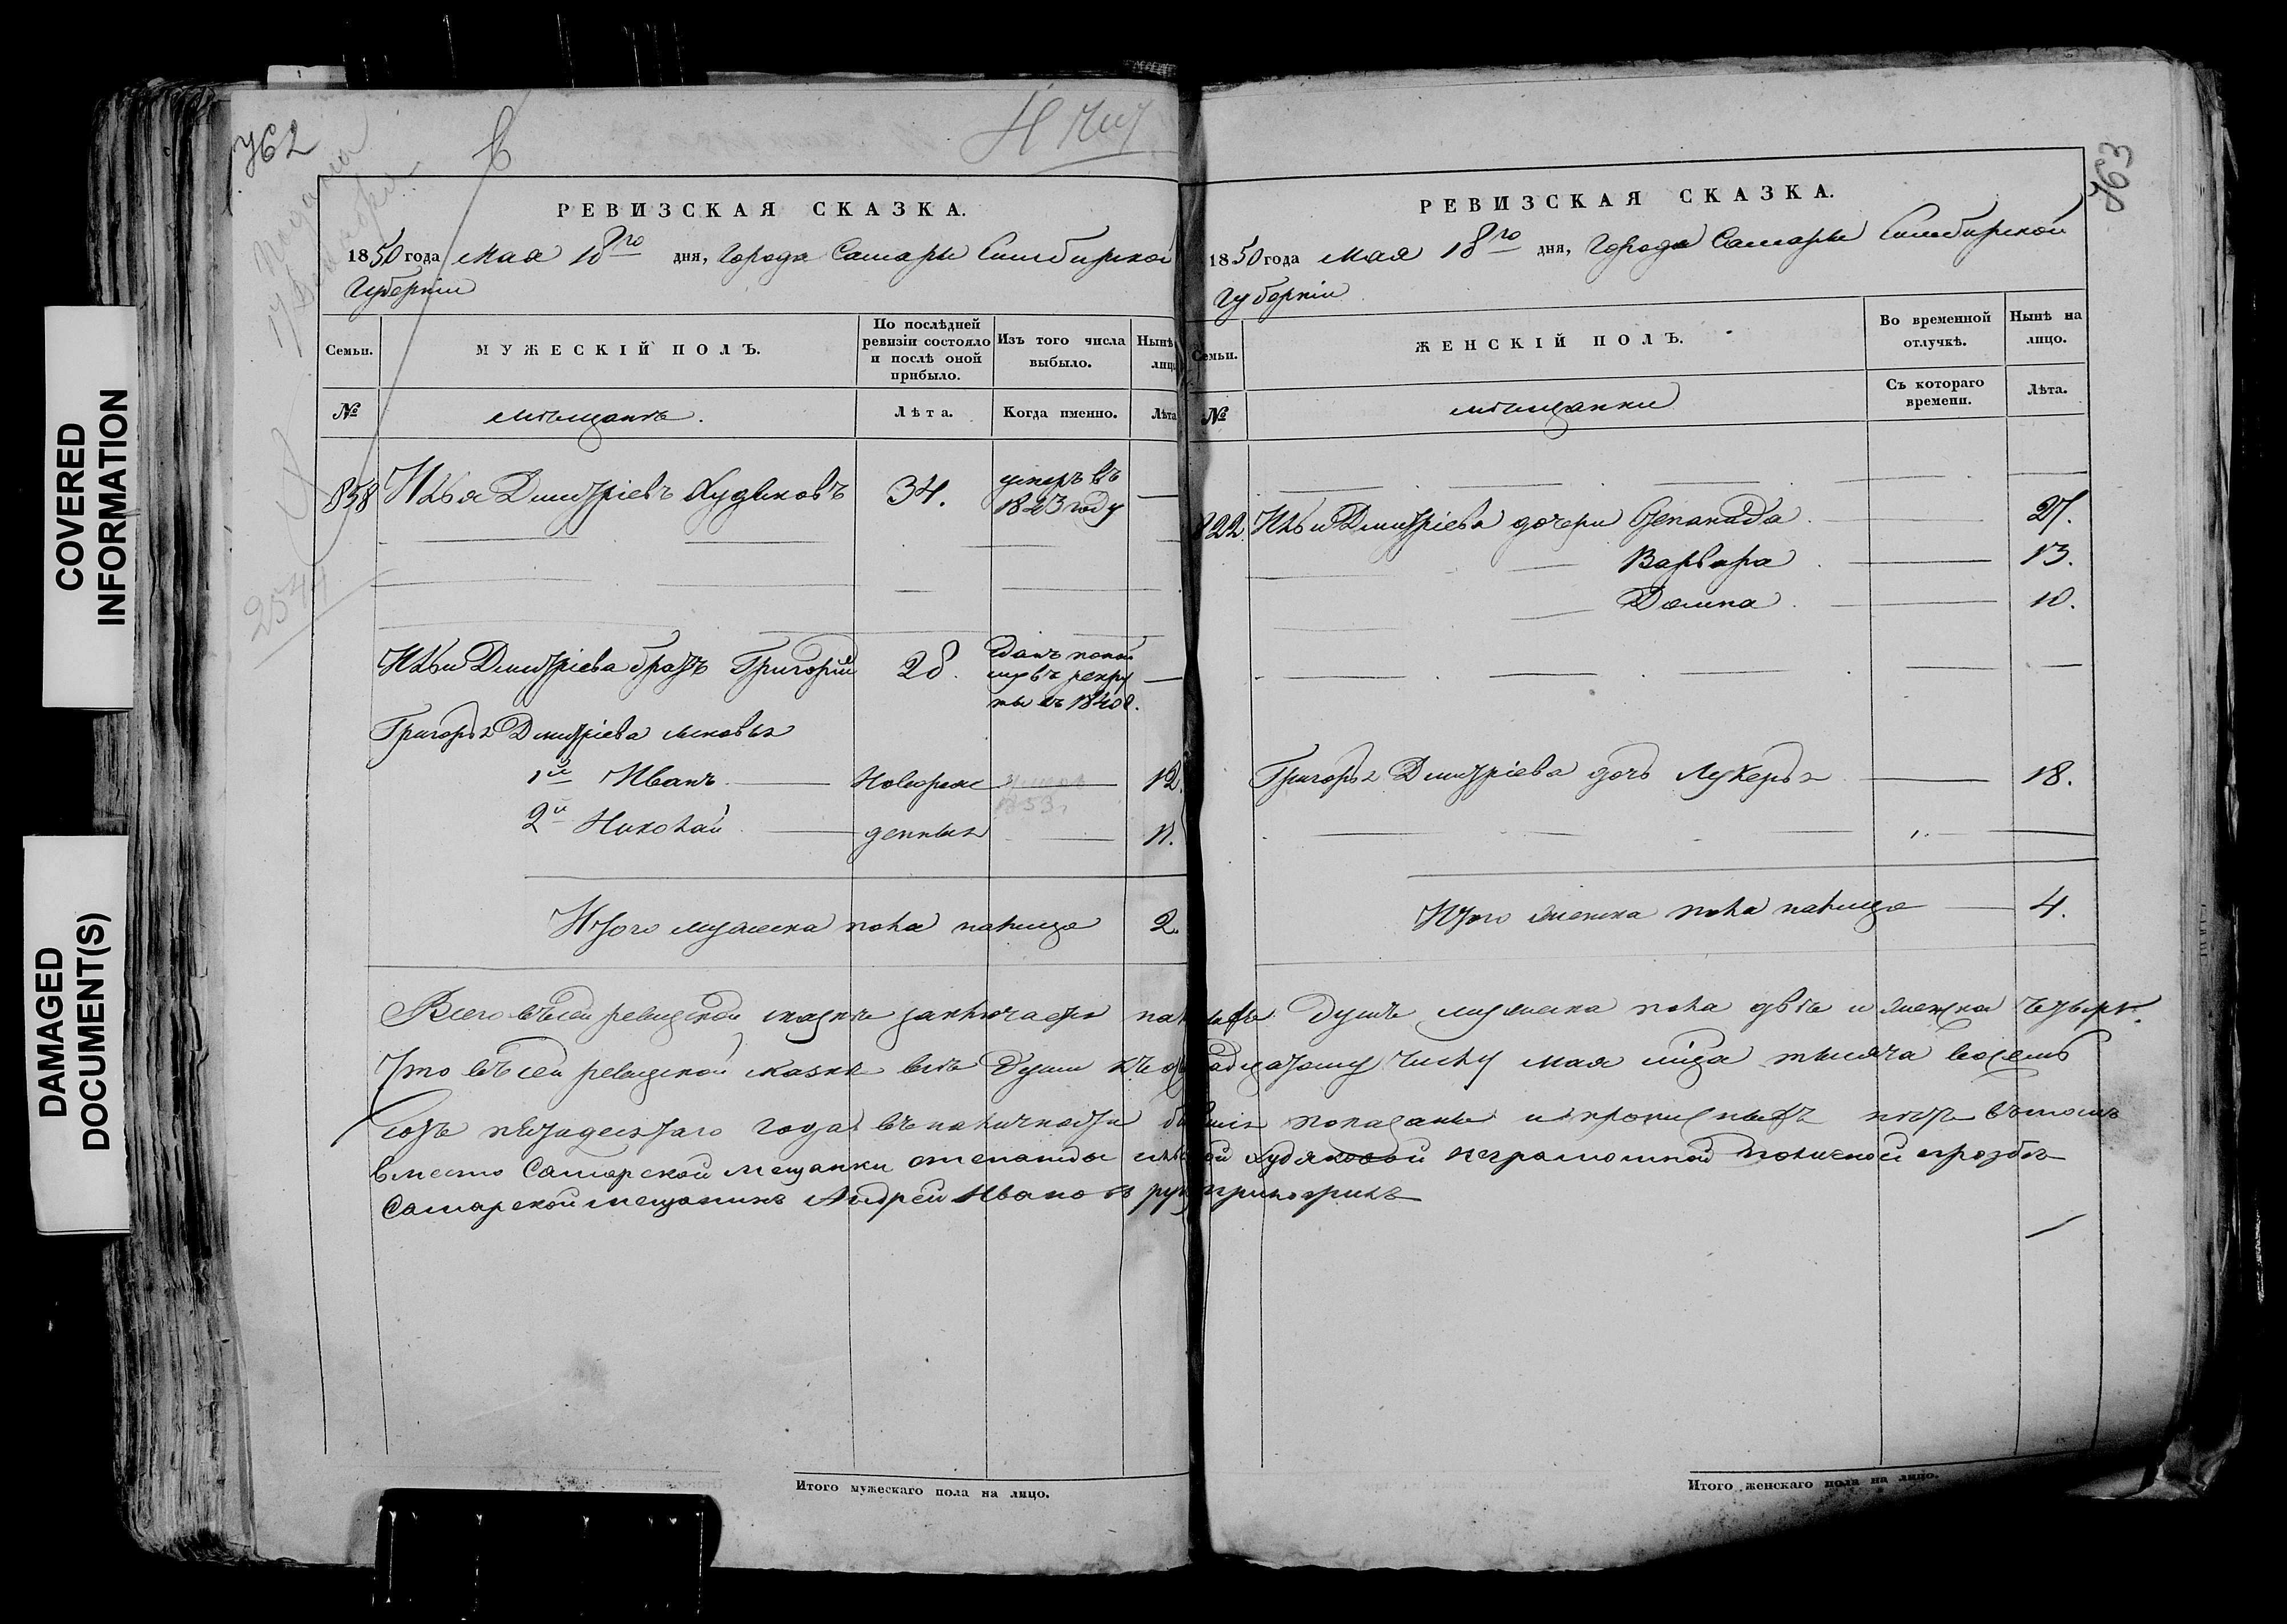 COVERED
INFORMATION
DAMAGED
DOCUMENT(S)
762
Н
РЕВИЗСКАЯ СКАЗКА.
1850 года Мая 18го дня, Города Самары Симбирской
Губерніи
Семьи.
МУЖЕСКІЙ ПОЛЪ.
По послѣдней
ревизіи состояло
и послѣ оной
прибыло.
Изъ того числа
выбыло.
Нынѣ
лицо
№
мѣщанъ.
Лѣта.
Когда именно.
Лѣта
838 Илья Дмитріевъ Худяковъ 34. умеръ въ
1843 году
Ильи Дмитріева братъ Григорій 28.
въ рекру
ты въ 1840 г.
Григорья Дмитріева сыновья
1й Иванъ Новорож 12.
умеръ
1853 г
2й Николай денныя 11.
Итого мужеска пола налицо 2.
Итого мужескаго пола на лицо.
763
РЕВИЗСКАЯ СКАЗКА.
1850 года Мая 18го дня, Города Самары Симбирской
Губерніи
Семьи.
ЖЕНСКІЙ ПОЛЪ.
Во временной
отлучкѣ.
Нынѣ на
лицо.
№
мѣщанки
Съ котораго
времени.
Лѣта.
822. Ильи Дмитріева дочери Степанида 27.
Варвара 13.
Домна 10.
Григорья Дмитріева дочь Лукерья 18.
Итого женска пола налицо 4.
Всего въ сей ревизской сказкѣ заключается душъ мужеска пола двѣ и женска четыре.
Что въ сей ревизской сказкѣ всѣ Души числу мая мца тысяча восемь
сотъ пятидесятаго года въ наличности показаны и нетъ въ томъ
вместо Самарской мещанки степаниды Худяковой неграмотной
Самарской мещанинъ Андрей Ивановъ
Итого женскаго пола на лицо.